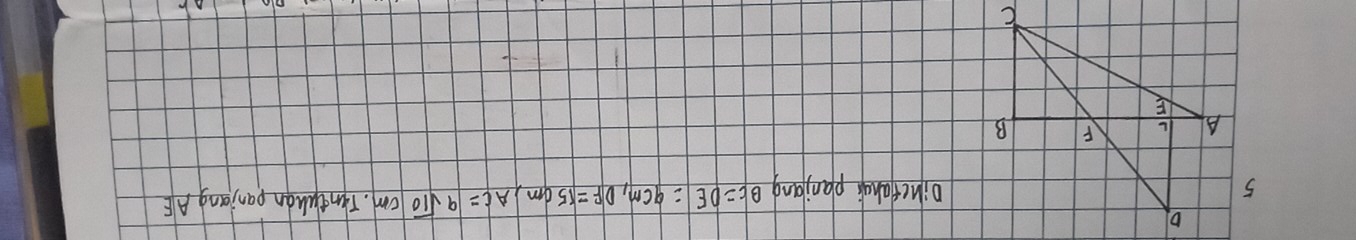 5
Diketahui panjang BC = DE = 9 cm, DF = 15 cm, AC = 9√10 cm. Tentukan panjang AE
D
A
L
E
F
B
C